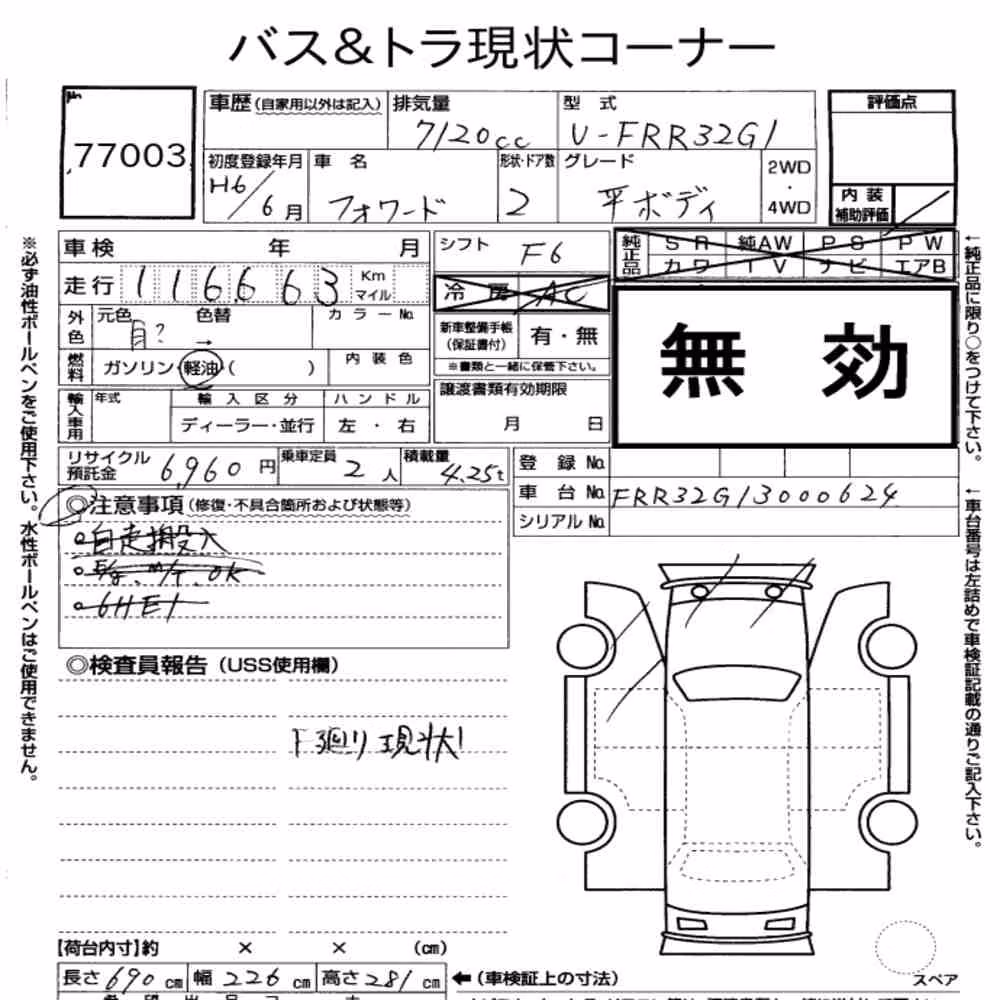 バス&トラ現状コーナー
77003
車歴(自家用以外は記入)
排気量
7120cc
型 式
U-FRR32G1
評価点
初度登録年月
H6/6月
車 名
フォワード
形状・ドア数
2
グレード
平ボディ
2WD
・
4WD
内 装
補助評価
車検 年 月
シフト
F6
純正品
SR 純AW PS PW
カワ TV ナビ エアB
走行 116663 Km
マイル
冷房 AC
外色
元色 色替
→
カラーNo.
新車整備手帳
(保証書付)
有・無
※書類と一緒に保管下さい。
無 効
燃料
ガソリン・軽油( )
内装色
輸入車用
年式
輸入区分
ディーラー・並行
ハンドル
左 ・ 右
譲渡書類有効期限
月 日
リサイクル
預託金
6,960 円
乗車定員
2 人
積載量
4.25t
登 録 No.
車 台 No. FRR32G13000624
シリアル No.
◎注意事項(修復・不具合箇所および状態等)
自走搬入
E/g. M/T. OK
6HE1
◎検査員報告(USS使用欄)
下廻り現状
【荷台内寸】約 × × (cm)
長さ690cm 幅226cm 高さ281cm ←(車検証上の寸法)
スペア
※必ず油性ボールペンをご使用下さい。水性ボールペンはご使用できません。
←純正品に限り○をつけて下さい。
←車台番号は左詰めで車検証記載の通りご記入下さい。